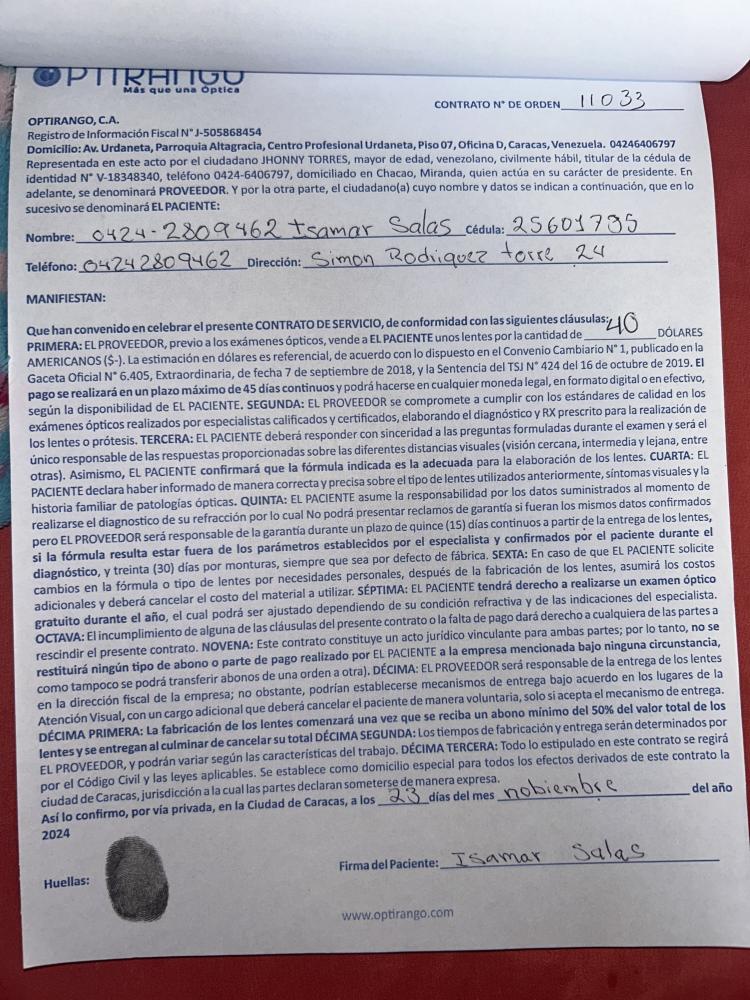 OPTIRANGO
Más que una Óptica
CONTRATO N° DE ORDEN 11033
OPTIRANGO, C.A.
Registro de Información Fiscal N° J-505868454
Domicilio: Av. Urdaneta, Parroquia Altagracia, Centro Profesional Urdaneta, Piso 07, Oficina D, Caracas, Venezuela. 04246406797
Representada en este acto por el ciudadano JHONNY TORRES, mayor de edad, venezolano, civilmente hábil, titular de la cédula de
identidad N° V-18348340, teléfono 0424-6406797, domiciliado en Chacao, Miranda, quien actúa en su carácter de presidente. En
adelante, se denominará PROVEEDOR. Y por la otra parte, el ciudadano(a) cuyo nombre y datos se indican a continuación, que en lo
sucesivo se denominará EL PACIENTE:
Nombre: 0424-2809462 Isamar Salas Cédula: 25601795
Teléfono: 04242809462 Dirección: Simon Rodriquez torre 24
MANIFIESTAN:
Que han convenido en celebrar el presente CONTRATO DE SERVICIO, de conformidad con las siguientes cláusulas:
PRIMERA: EL PROVEEDOR, previo a los exámenes ópticos, vende a EL PACIENTE unos lentes por la cantidad de 40 DÓLARES
AMERICANOS ($-). La estimación en dólares es referencial, de acuerdo con lo dispuesto en el Convenio Cambiario N° 1, publicado en la
Gaceta Oficial N° 6.405, Extraordinaria, de fecha 7 de septiembre de 2018, y la Sentencia del TSJ N° 424 del 16 de octubre de 2019. El
pago se realizará en un plazo máximo de 45 días continuos y podrá hacerse en cualquier moneda legal, en formato digital o en efectivo,
según la disponibilidad de EL PACIENTE. SEGUNDA: EL PROVEEDOR se compromete a cumplir con los estándares de calidad en los
exámenes ópticos realizados por especialistas calificados y certificados, elaborando el diagnóstico y RX prescrito para la realización de
los lentes o prótesis. TERCERA: EL PACIENTE deberá responder con sinceridad a las preguntas formuladas durante el examen y será el
único responsable de las respuestas proporcionadas sobre las diferentes distancias visuales (visión cercana, intermedia y lejana, entre
otras). Asimismo, EL PACIENTE confirmará que la fórmula indicada es la adecuada para la elaboración de los lentes. CUARTA: EL
PACIENTE declara haber informado de manera correcta y precisa sobre el tipo de lentes utilizados anteriormente, síntomas visuales y la
historia familiar de patologías ópticas. QUINTA: EL PACIENTE asume la responsabilidad por los datos suministrados al momento de
realizarse el diagnostico de su refracción por lo cual No podrá presentar reclamos de garantía si fueran los mismos datos confirmados
pero EL PROVEEDOR será responsable de la garantía durante un plazo de quince (15) días continuos a partir de la entrega de los lentes,
si la fórmula resulta estar fuera de los parámetros establecidos por el especialista y confirmados por el paciente durante el
diagnóstico, y treinta (30) días por monturas, siempre que sea por defecto de fábrica. SEXTA: En caso de que EL PACIENTE solicite
cambios en la fórmula o tipo de lentes por necesidades personales, después de la fabricación de los lentes, asumirá los costos
adicionales y deberá cancelar el costo del material a utilizar. SÉPTIMA: EL PACIENTE tendrá derecho a realizarse un examen óptico
gratuito durante el año, el cual podrá ser ajustado dependiendo de su condición refractiva y de las indicaciones del especialista.
OCTAVA: El incumplimiento de alguna de las cláusulas del presente contrato o la falta de pago dará derecho a cualquiera de las partes a
rescindir el presente contrato. NOVENA: Este contrato constituye un acto jurídico vinculante para ambas partes; por lo tanto, no se
restituirá ningún tipo de abono o parte de pago realizado por EL PACIENTE a la empresa mencionada bajo ninguna circunstancia,
como tampoco se podrá transferir abonos de una orden a otra). DÉCIMA: EL PROVEEDOR será responsable de la entrega de los lentes
en la dirección fiscal de la empresa; no obstante, podrían establecerse mecanismos de entrega bajo acuerdo en los lugares de la
Atención Visual, con un cargo adicional que deberá cancelar el paciente de manera voluntaria, solo si acepta el mecanismo de entrega.
DÉCIMA PRIMERA: La fabricación de los lentes comenzará una vez que se reciba un abono mínimo del 50% del valor total de los
lentes y se entregan al culminar de cancelar su total DÉCIMA SEGUNDA: Los tiempos de fabricación y entrega serán determinados por
EL PROVEEDOR, y podrán variar según las características del trabajo. DÉCIMA TERCERA: Todo lo estipulado en este contrato se regirá
por el Código Civil y las leyes aplicables. Se establece como domicilio especial para todos los efectos derivados de este contrato la
ciudad de Caracas, jurisdicción a la cual las partes declaran someterse de manera expresa.
Así lo confirmo, por vía privada, en la Ciudad de Caracas, a los 23 días del mes nobiembre del año
2024
Huellas:
Firma del Paciente: Isamar Salas
www.optirango.com